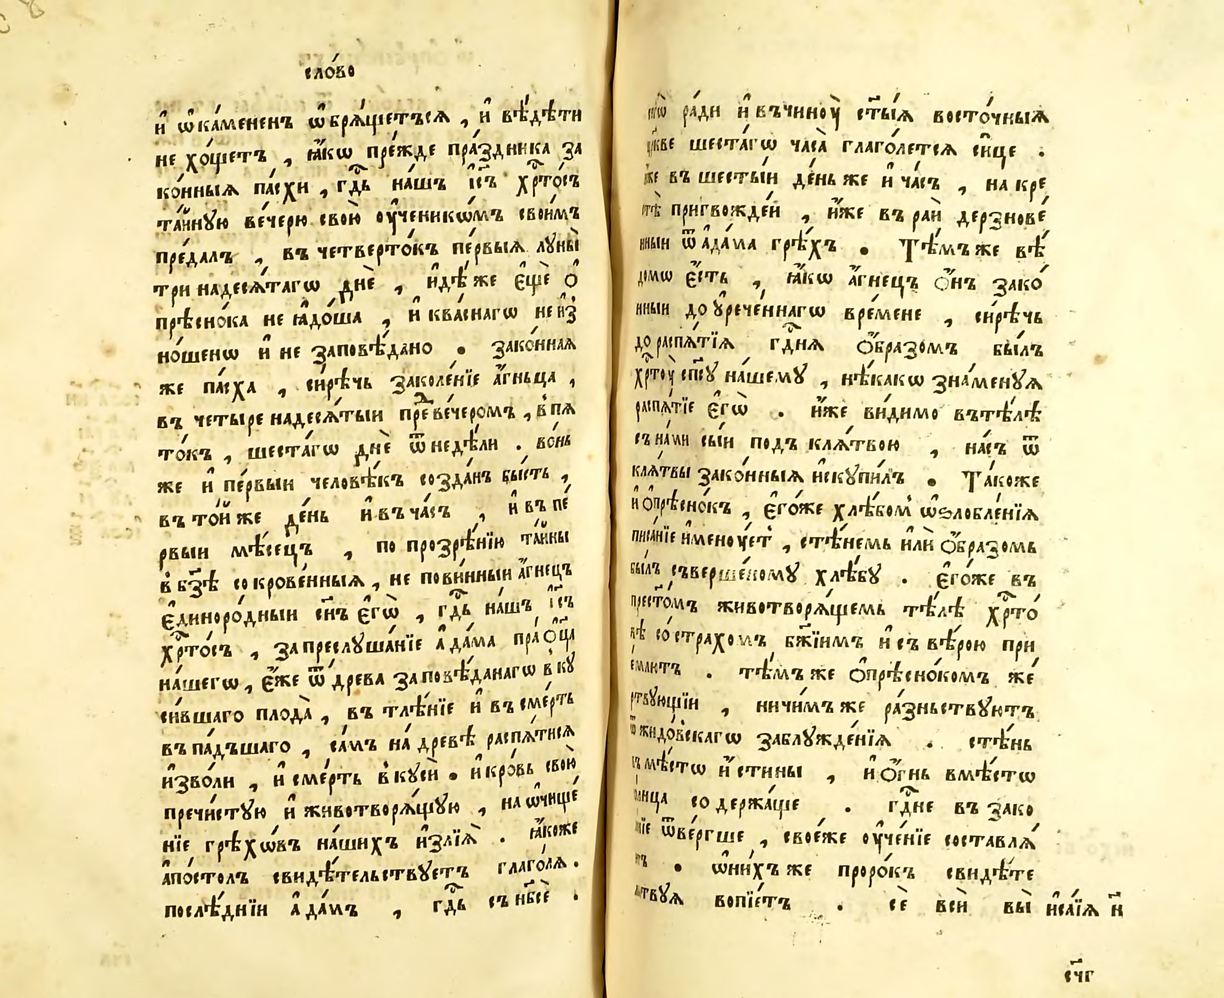 сло́во
и҆ ѡ҆ка́мененъ ѡ҆брѧ́щетъсѧ , и҆ вѣ́дѣти
не хо́щетъ , ꙗ҆́кѡ пре́жде пра́здника за
ко́нныѧ па́схи , гд҇ь на́шъ і҆с҃ъ хр҇то́съ
та́йную вече́рю свою̀ оу҆ченикѡ́мъ свои́мъ
преда́лъ , въ четверто́къ пе́рвыѧ луны̀
три надесѧ́тагѡ дн҃е , и҆дѣ́же є҆щѐ ѻ
прѣсно́ка не ꙗ҆до́ша , и҆ ква́снагѡ не и҆з
но́шенѡ и҆ не заповѣ́дано . зако́нная
же па́сха , си́рѣчь заколе́нїе а҆́гньца ,
въ четыре надесѧ́тыи пре вечеромъ , в пѧ
то́къ , шеста́гѡ дн҃е ѿ недѣ́ли . во́нь
же и҆ пе́рвыи человѣ́къ созда́нъ бы́сть ,
въ то́й же де́нь и҆ въ ча́съ , и҆ въ пе́
рвыи мѣ́сецъ , по прозрѣ́нїю та́йны
в бз҃ѣ сокрове́нныѧ , не пови́нныи а҆́гнецъ
є҆диноро́дныи сн҃ъ є҆гѡ̀ , гд҇ь на́шъ і҆с҃ъ
хр҇то́съ , за преслуша́нїе а҆да́ма пра ѻц҃а
на́шегѡ , є҆́же ѿ древа заповѣ́данагѡ вку
си́вшаго плода̀ , въ тлѣ́нїе и҆ въ сме́рть
въпа́дъшаго , са́мъ на́ древѣ распѧ́тисѧ
и҆зво́ли , и҆ сме́рть вкусѝ . и҆ кро́вь свою̀
пречи́стую и҆ животворѧ́щую , на ѡ҆чище́
нїе грѣхѡ́въ на́шихъ и҆злїѧ̀ . ꙗ҆́коже
а҆по́столъ свидѣ́тельствуетъ глаго́лѧ .
послѣ́днїи а҆да́мъ , гд҇ь съ нб҃сѐ .
ра́ди и҆ въ чиноу̀ ст҃ы́ѧ восто́чныѧ
шеста́гѡ часа̀ глаго́летсѧ си́це .
въ шесты́и де́нь же и҆ ча́съ , на кре
пригвожде́й , и҆́же въ раѝ дерзнове́
ѿ а҆да́ма грѣ́хъ . Тѣ́мъже вѣ́
домѡ є҆́сть , ꙗ҆́кѡ а҆́гнецъ ѻ҆́нъ зако́
нныи до урече́ннагѡ вре́мене , си́рѣчь
до распѧ́тїѧ гд҇нѧ ѻ҆́бразомъ бы́лъ
хр҇тоу̀ сп҃су на́шему , нѣ́какѡ зна́менуѧ
распѧ́тїе є҆гѡ̀ . и҆́же ви́димо въ тѣ́лѣ
съ на́ми сы́и подъ клѧ́твою , на́съ ѿ
клѧ́твы зако́нныѧ и҆скупи́лъ . Та́коже
и҆ ѻ҆прѣсно́къ , є҆го́же хлѣ́бом ѡ҆ѕлобле́нїѧ
писа́нїе и҆меноу́ет , стѣ́немь и҆лѝ ѻ҆́бразомь
бы́лъ съверше́ному хлѣ́бу . є҆го́же въ
прест҃о́мъ животворѧ́щемь тѣ́лѣ хр҇то́
вѣ со стра́хомъ бж҃їимъ и҆ съ вѣ́рою при
е́млитъ . тѣ́мъже ѻ҆прѣсно́комъ же́
ничи́мъже ра́зньствуитъ
ѿ жидо́вскагѡ заблужде́нїѧ . стѣ́нь
вмѣ́стѡ и҆́стины , и҆ ѻ҆́гнь вмѣ́стѡ
со держа́ще . гд҇не въ зако
ѿве́ргше , свое́же оу҆че́нїе составлѧ́
ѡ҆ни́хъже проро́къ свидѣ́те
вопїе́тъ . се̇ всѝ вы̀ и҆са́їѧ н҃
сч҃г